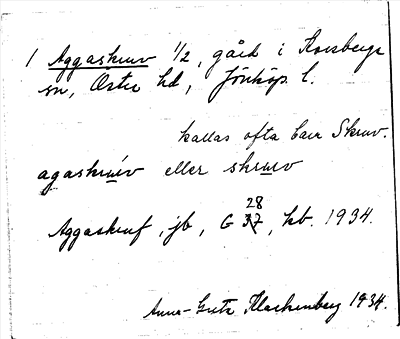 1 Aggaskruv 1/2, gård i Korsberga
sn, Östra hd, Jönköp. l.
kallas ofta bara Skruv.
agaskrúv eller skruv
Aggaskruf, jb, G 37 28, kb. 1934.
Anna-Greta Klackenberg 1934.